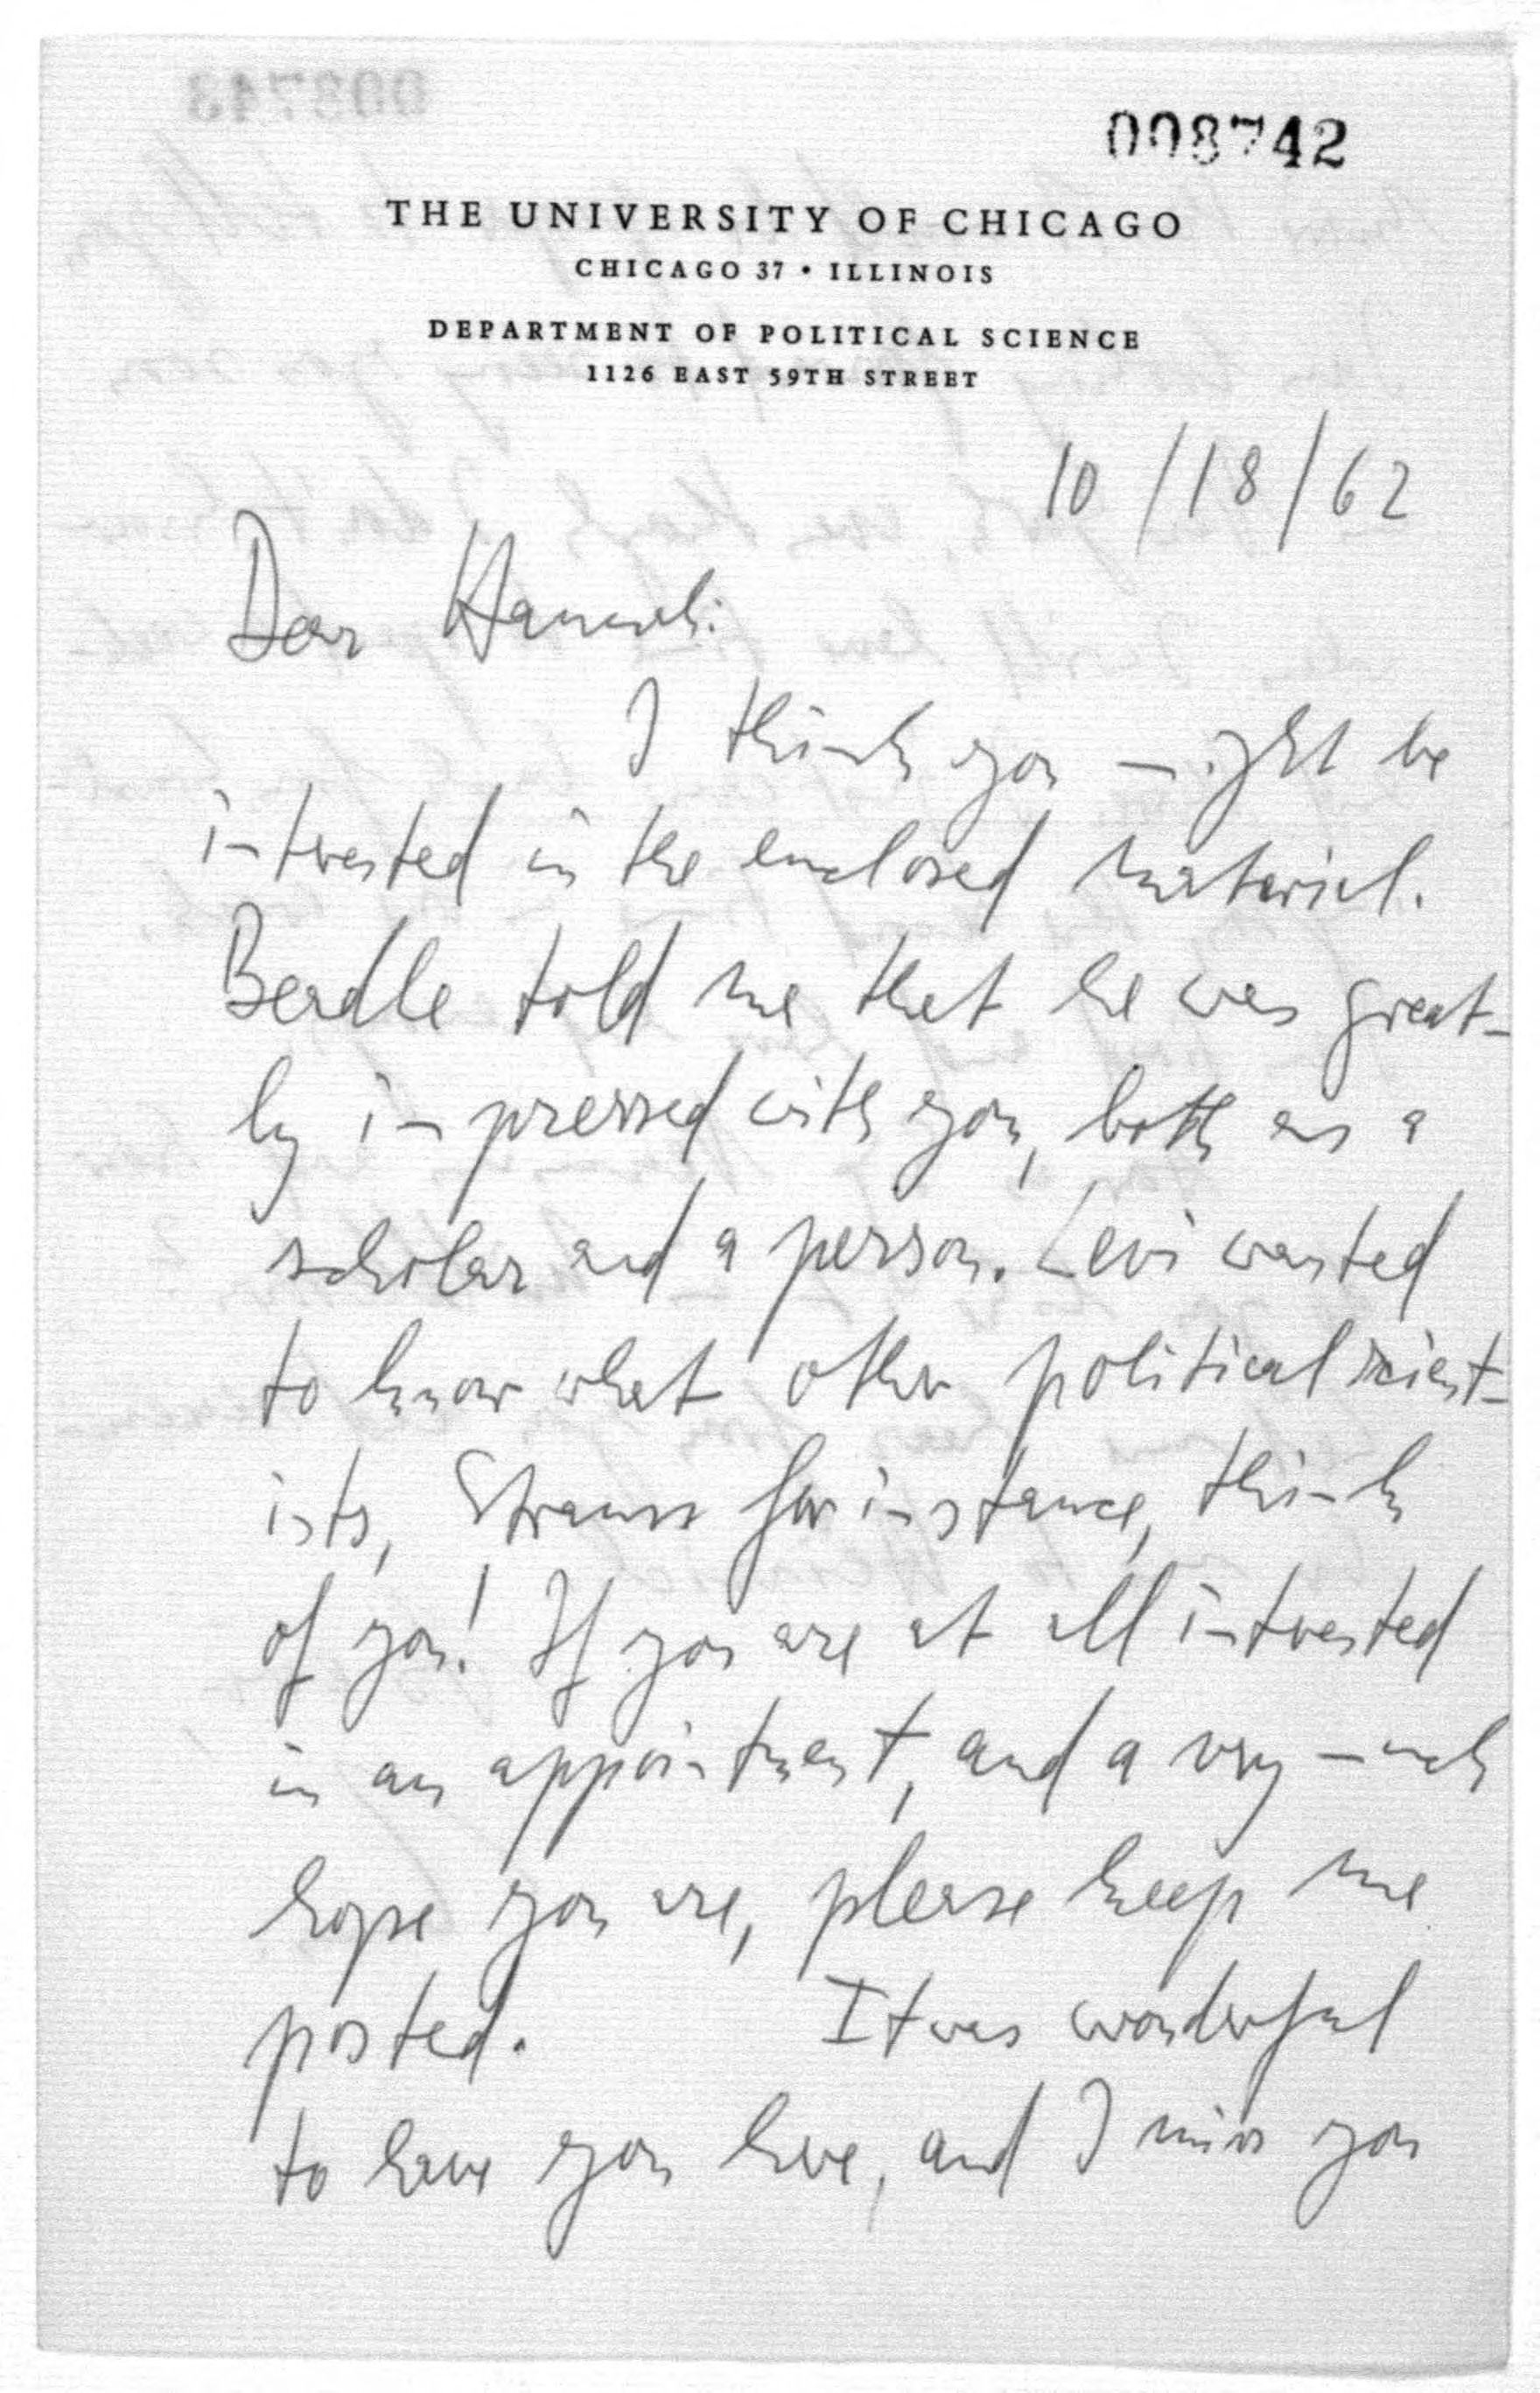 008742
THE UNIVERSITY OF CHICAGO
CHICAGO 37 • ILLINOIS
DEPARTMENT OF POLITICAL SCIENCE
1126 EAST 59TH STREET
10/18/62
Dear Hannah:
I think you might be
interested in the enclosed material.
Beadle told me that he was great-
ly impressed with you, both as a
scholar and a person. Levi wanted
to know what other political scient-
ists, Strauss for instance, think
of you! If you are at all interested
in an appointment, and a very much
hope you are, please keep me
posted. It was wonderful
to have you here, and I miss you